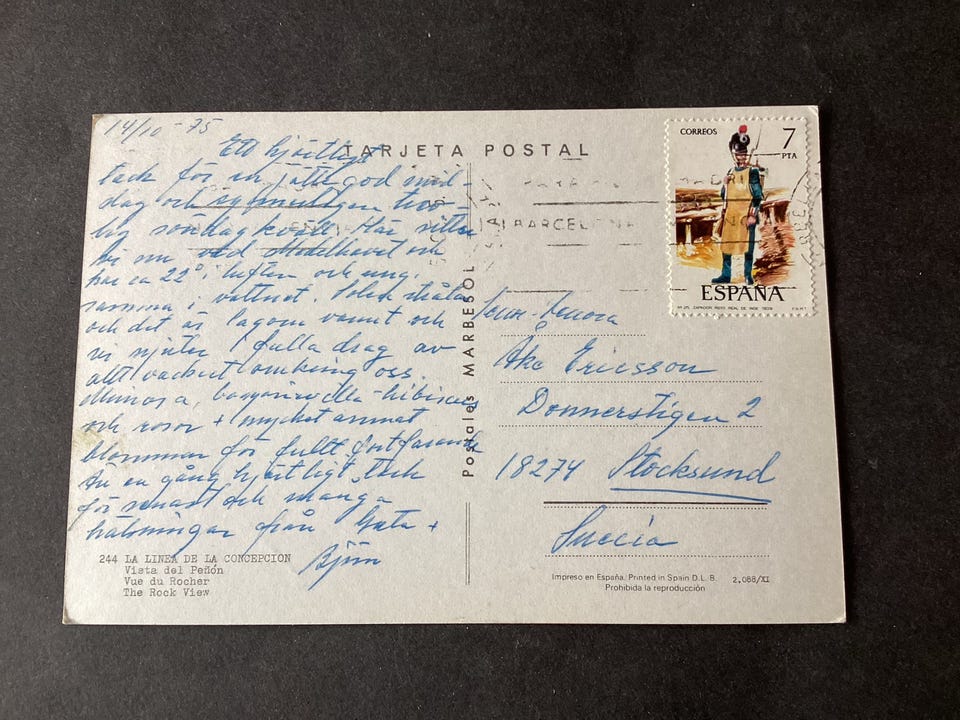 14/10 - 75
TARJETA POSTAL
Ett hjärtligt
tack för en jätte god mid-
dag och
lig söndagkväll. Här sitter
vi nu ved Medelhavet och
har ca 22° i luften och ung.
samma i vattnet. Solen strålar
och det är lagom varmt och
vi njuter i fulla drag av
allt vackert omkring oss.
Mimosa, bougainvillia - hibiscus
och rosor + mycket annat
blommar för fullt fortfarande
Än en gång hjärtligt tack
för senast och många
hälsningar från +
Björn
244 LA LINEA DE LA CONCEPCION
Vista del Peñón
Vue du Rocher
The Rock View
Postales MARBESOL
CORREOS
7
PTA
ESPAÑA
BARCELONA
Åke Ericsson
Donnerstigen 2
18274 Stocksund
Suecia
Impreso en España. Printed in Spain D.L.B. 2.088/XI
Prohibida la reproducción